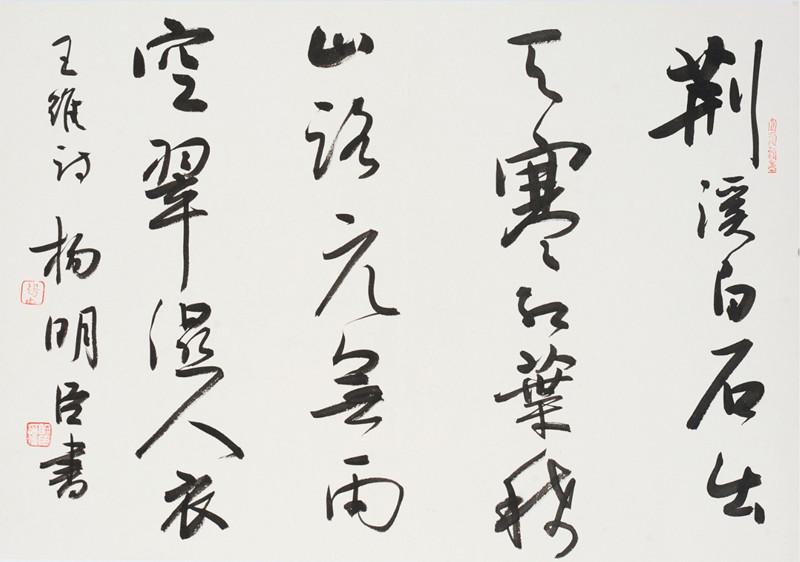 荆溪白石出
天寒红葉稀
山路元無雨
空翠濕人衣
王維詩 楊明臣書